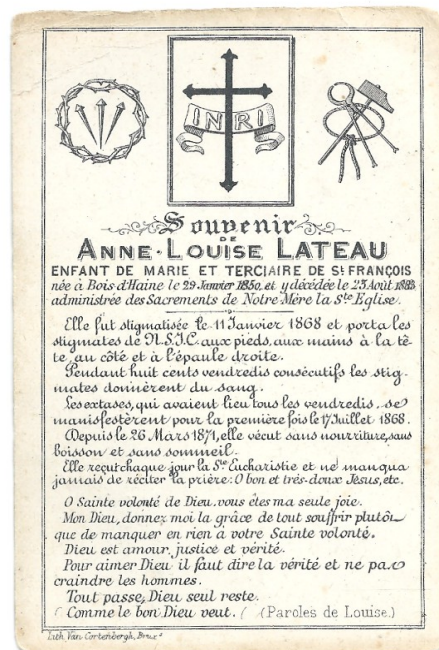 INRI
Souvenir
DE
ANNE-LOUISE LATEAU
ENFANT DE MARIE ET TERCIAIRE DE St FRANÇOIS
née à Bois d'Haine le 29 Janvier 1850, et y décédée le 25 Août 1883
administrée des Sacrements de Notre Mère la Ste Eglise.
Elle fut stigmatisée le 11 Janvier 1868 et porta les
stigmates de N.S.J.C. aux pieds, aux mains à la tê-
te au côté et à l'épaule droite.
Pendant huit cents vendredis consécutifs les stig-
mates donnèrent du sang.
Les extases, qui avaient lieu tous les vendredis, se
manifestèrent pour la première fois le 17 Juillet 1868.
Depuis le 26 Mars 1871, elle vécut sans nourriture, sans
boisson et sans sommeil.
Elle reçut chaque jour la Ste Eucharistie et ne manqua
jamais de réciter la prière: O bon et très-doux Jésus, etc.
O Sainte volonté de Dieu. vous êtes ma seule joie.
Mon Dieu, donnez moi la grâce de tout souffrir plutôt
que de manquer en rien à votre Sainte volonté.
Dieu est amour, justice et vérité.
Pour aimer Dieu il faut dire la vérité et ne pas
craindre les hommes.
Tout passe, Dieu seul reste.
Comme le bon Dieu veut. (Paroles de Louise.)
Lith. Van Cortenbergh, Brux.s